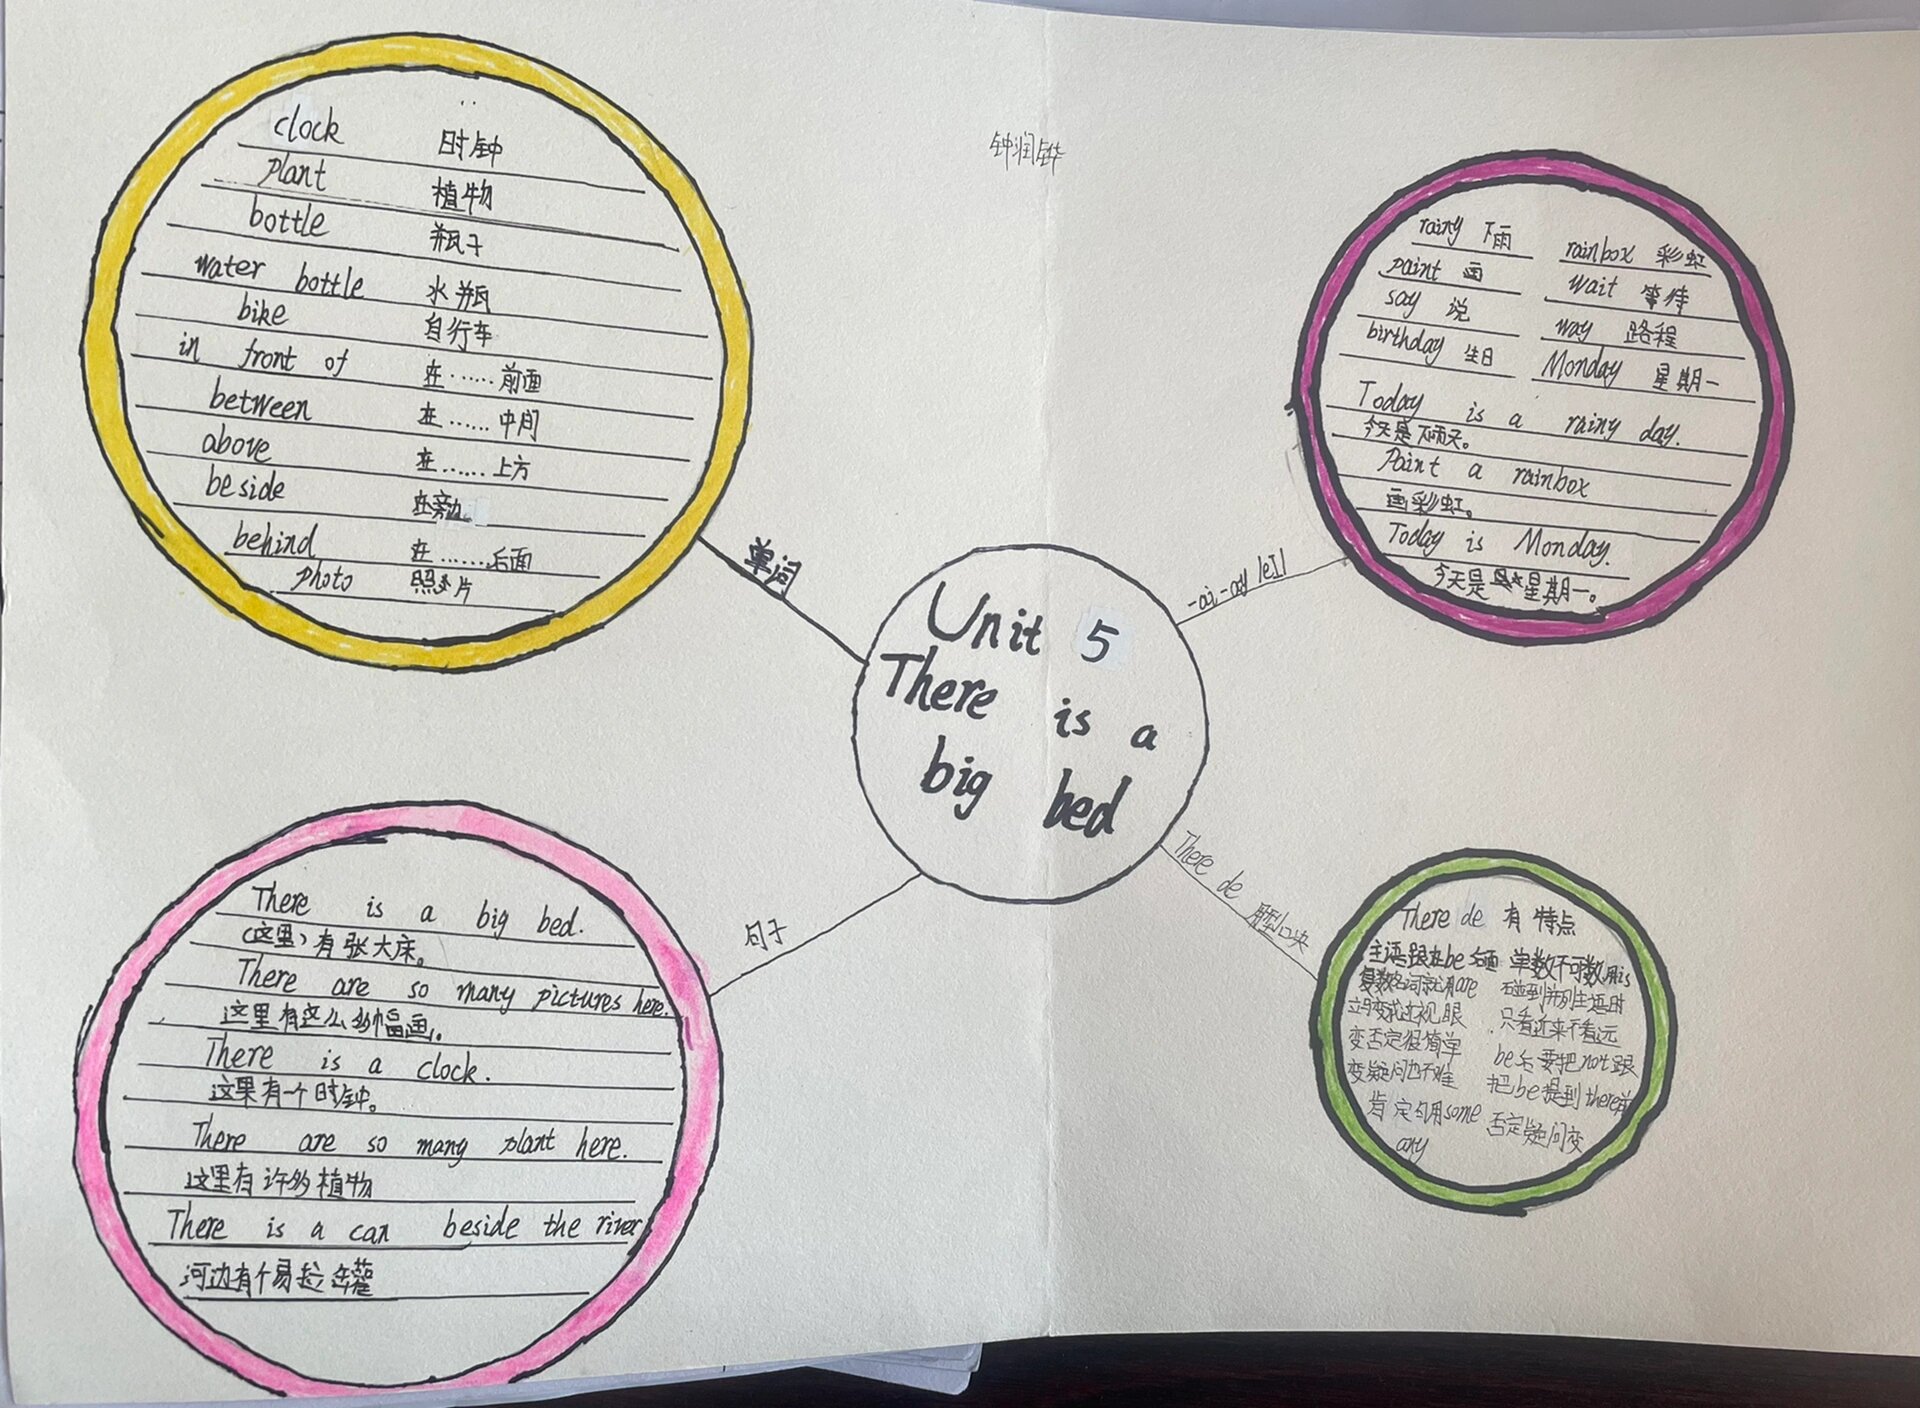 clock 时钟
plant 植物
bottle 瓶子
water bottle 水瓶
bike 自行车
in front of 在……前面
between 在……中间
above 在……上方
beside 在旁边
behind 在……后面
photo 照片
钟润铧
rainy 下雨 rainbox 彩虹
paint 画 wait 等待
say 说 way 路程
birthday 生日 Monday 星期一
Today is a rainy day.
今天是下雨天。
Paint a rainbox
画彩虹。
Today is Monday.
今天是星期一。
单词
-ai -ay /eI/
Unit 5
There is a
big bed
句子
There de 句型口决
There is a big bed.
(这里)有张大床。
There are so many pictures here.
这里有这么多幅画。
There is a clock.
这果有一个时钟。
There are so many plant here.
这里有许多植物
There is a can beside the river
河边有个易拉罐
There de 有特点
主语跟在be后面 单数不可数用is
复数名词就用are 碰到并列主语时
立即变成近视眼 只看近来不看远
变否定很简单 be后要把not跟
变疑问也不难 把be提到there前
肯定句用some 否定疑问变
any